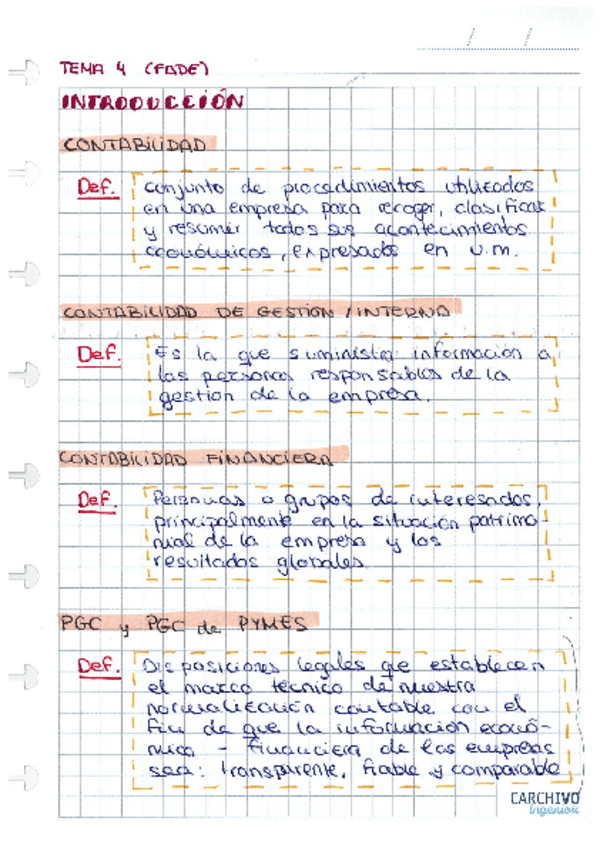 TEMA 4 (FADE)
INTRODUCCIÓN
CONTABILIDAD
Def. conjunto de procedimientos utilizados
en una empresa para recoger, clasificar
y resumir todos sus acontecimientos
económicos, expresados en u.m.
CONTABILIDAD DE GESTIÓN / INTERNA
Def. Es la que suministra información a
las personas responsables de la
gestión de la empresa.
CONTABILIDAD FINANCIERA
Def. Personas o grupos de interesados,
principalmente en la situación patrimo-
nial de la empresa y los
resultados globales.
PGC y PGC de PYMES
Def. Disposiciones legales que establecen
el marco técnico de nuestra
normalización contable con el
fin de que la información econó-
mica - financiera de las empresas
sea: transparente, fiable y comparable
CARCHIVO
Ingeniox